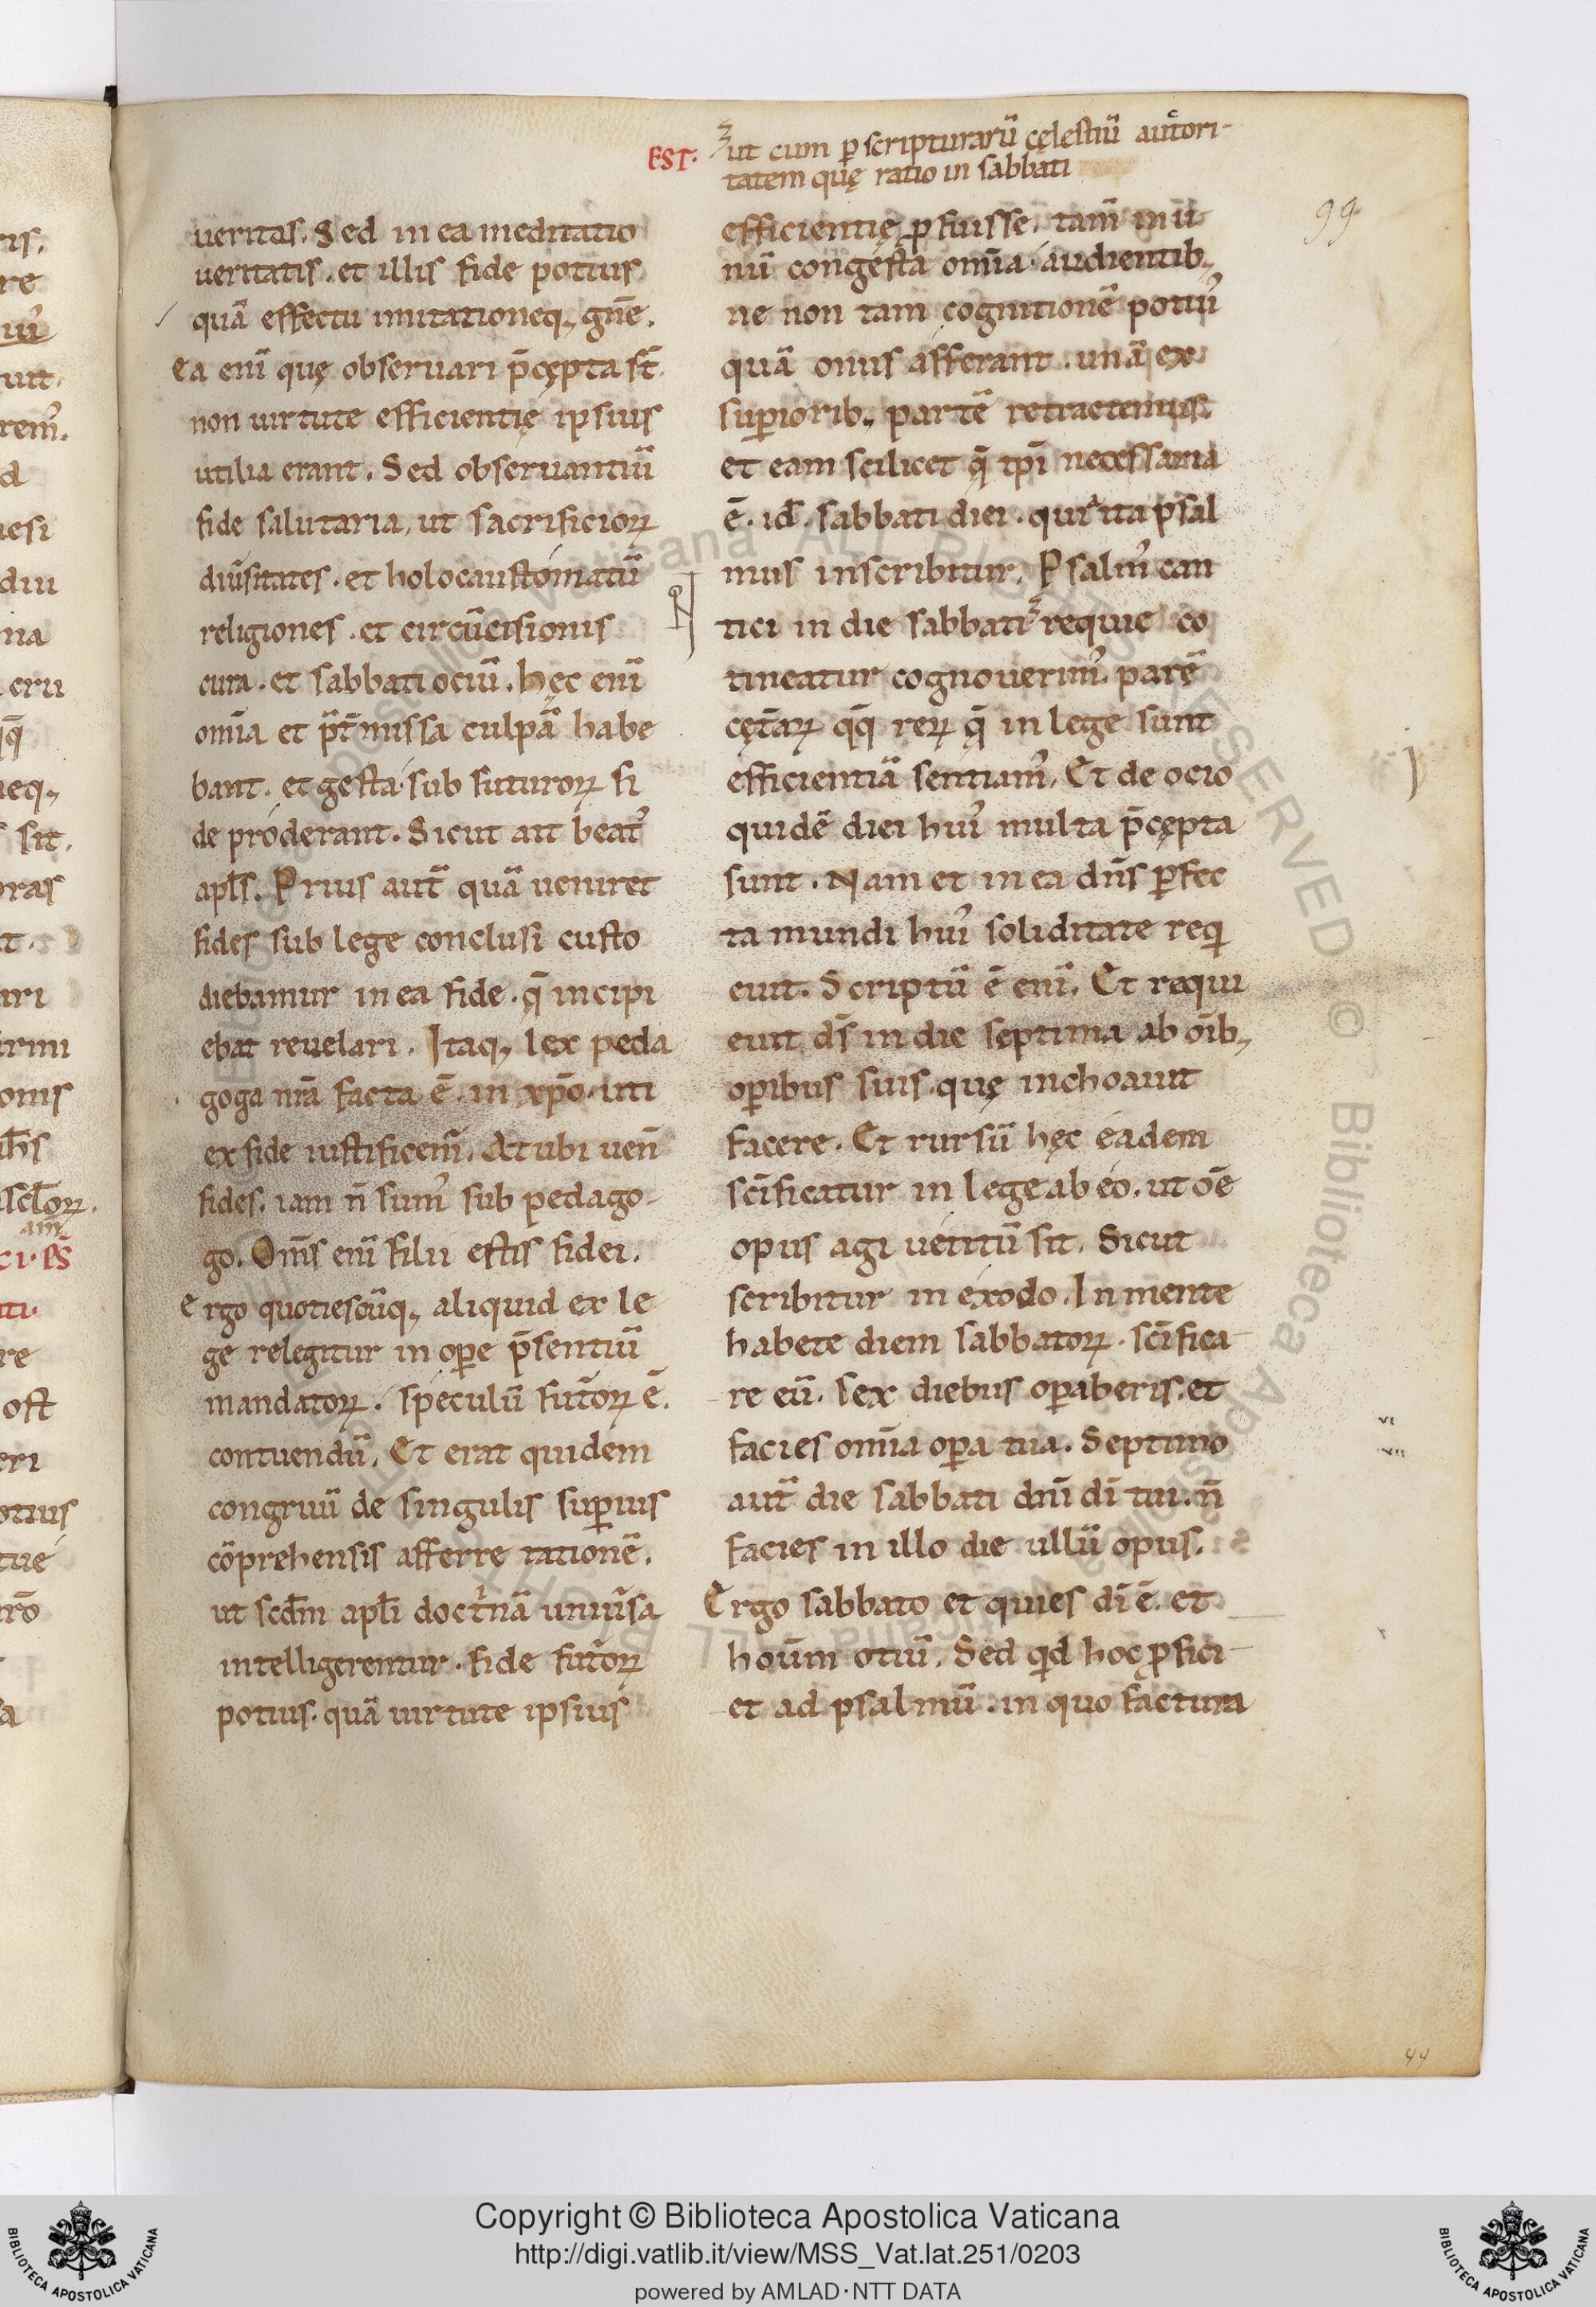 ut cum ꝑ scripturarũ cęlestiũ auctori-
EST.
tatem quę ratio in sabbati
99
ueritas. Sed in ea meditatio
ueritatis. et illis fide potius
quã effectu imitationeq; gñe.
Ea eni̅ quę obseruari p̄cępta st̄.
non uirtute efficientię ipsius
utilia erant. Sed obseruantiũ
fide salutaria, ut sacrificioꝝ
diũsitates. et holocaustomatũ
religiones. et circũcisionis
cura. et sabbati ociũ. hęc eni̅
om̄ia et p̃t̄missa culpã habe
bant. et gesta sub futuroꝝ fi
de proderant. Sicut ait beat᾿
apl̄s. Prius aut̃ quã ueniret
fides sub lege conclusi custo
diebamur in ea fide. q̄ incipi
ebat reuelari. Itaq; lex peda
goga nr̄a facta ē. in xp̄o. uti
ex fide iustificem᾿. At ubi uen̄
fides. iam n̄ sum᾿ sub pedago-
go. Om̄s eni̅ filii estis fidei.
Ergo quotiescũq; aliquid ex le
ge relegitur in oꝑe p̄sentiũ
mandatoꝝ. speculũ fut̃oꝝ ē.
contuendũ. Et erat quidem
congruũ de singulis suꝑius
cõprehensis afferre rationẽ.
ut scd̄m apl̄i doctⁱnã uniũsa
intelligerentur. fide fut̃oꝝ
potius. quã uirtute ipsius
efficientię, ꝓfuisse. tam̄ in u
nũ congesta om̄ia audientib;
ne non tam cognitionẽ potiu᾿
quã onus afferant. unã ex
suꝑiorib; partẽ retractemus.
et eam scilicet q̄ tꝑi necessaria
ē. id. sabbati diei. qur ita psal
mus inscribitur. Psalm᾿ can
tici in die sabbati requie co
tineatur cognouerim᾿. parẽ
cęt̄aꝝ q̄q̄ reꝝ q̄ in lege sunt
efficientiã sentiam᾿. Et de ocio
quidẽ diei hui᾿ multa p̄cępta
sunt. Nam et in ea dn̄s ꝑfec
ta mundi hui᾿ soliditate req
euit. Scriptũ ē eni̅. Et requi
euit d̄s in die septima ab oīb;
oꝑibus suis. quę inchoauit
facere. Et rursũ hęc eadem
sc̄ificatur in lege ab eo. ut oẽ
opus agi uetitũ sit. Sicut
scribitur in exodo. In mente
habete diem sabbatoꝝ. sc̄ifica-
re eũ. sex diebus oꝑaberis. et
facies om̄ia oꝑa tua. Septimo
aut̃ die sabbati dn̄i di̅ tui. n̄
facies in illo die ullũ opus.
Ergo sabbato et quies di̅ ē. et
hoũm otiũ. Sed qd hoc ꝓfici-
et ad psalmũ. in quo factura
vi
vii
44
Copyright © Biblioteca Apostolica Vaticana
http://digi.vatlib.it/view/MSS_Vat.lat.251/0203
powered by AMLAD·NTT DATA